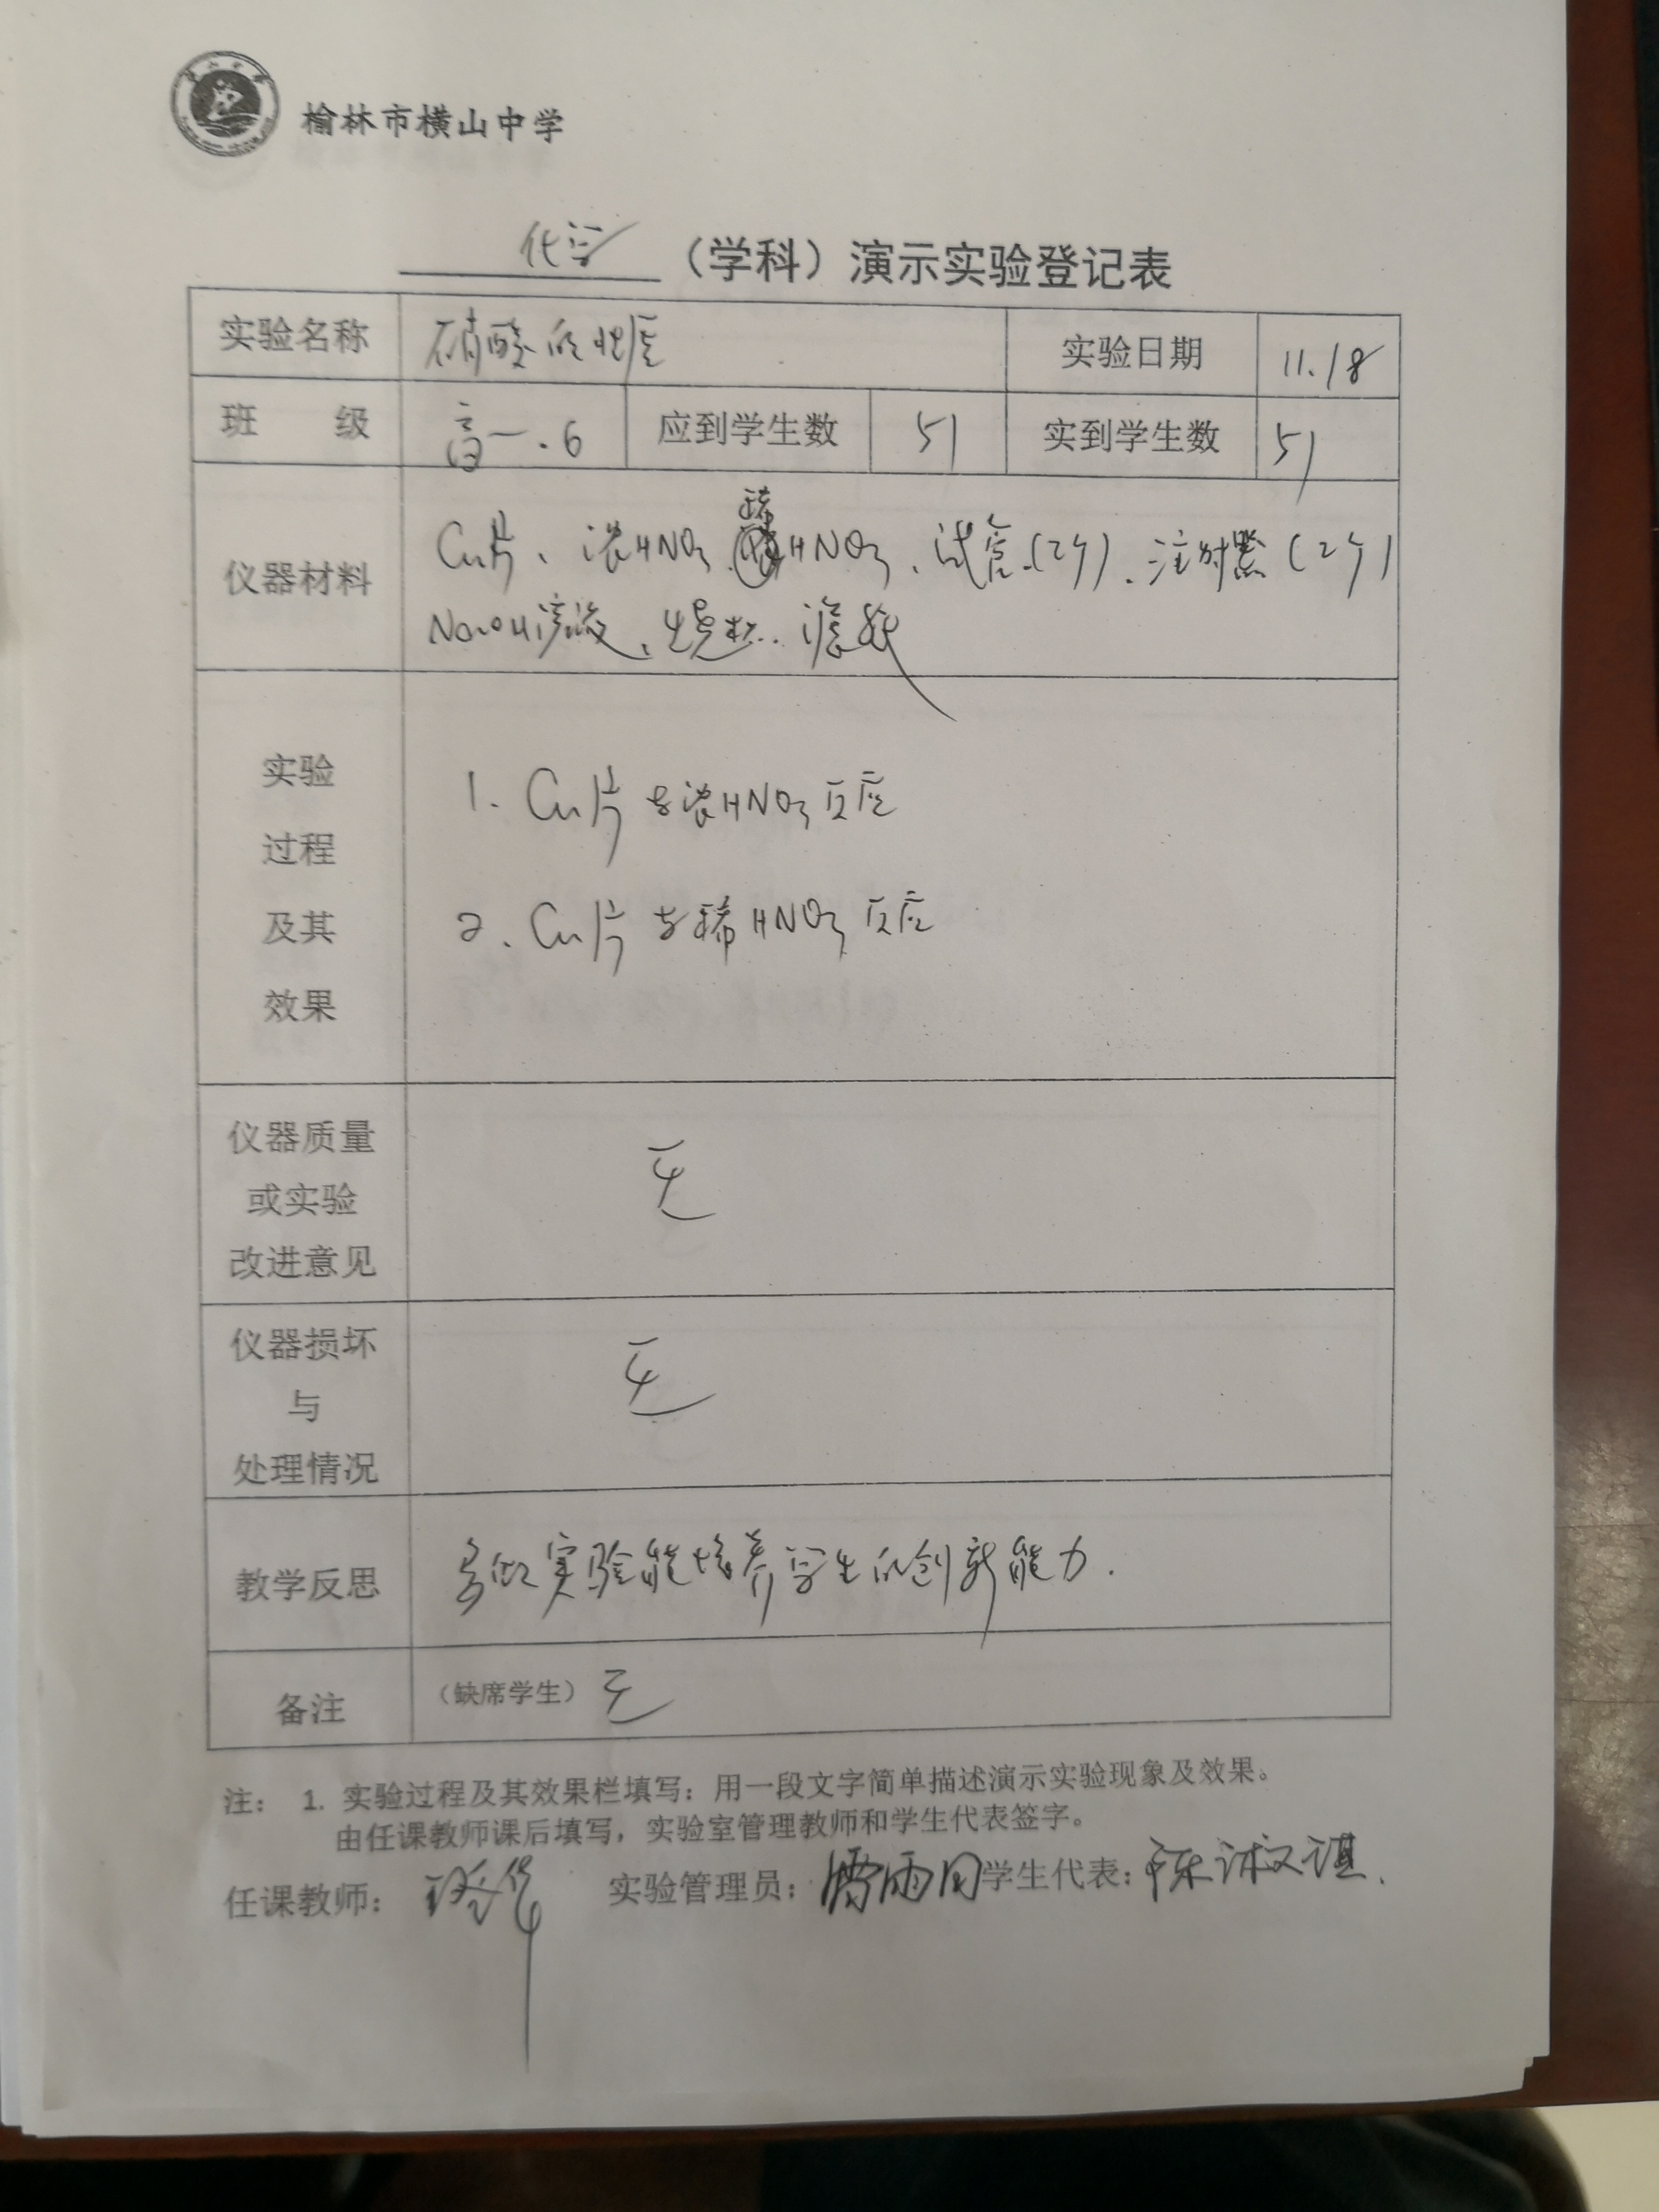 榆林市横山中学
化学（学科）演示实验登记表
实验名称 硝酸的性质 实验日期 11.18
班 级 高一.6 应到学生数 51 实到学生数 51
仪器材料
Cu片、浓HNO3、稀HNO3、试管(2个)、注射器(2个)
NaOH溶液、胶塞
实验
过程
及其
效果
1. Cu片与浓HNO3反应
2. Cu片与稀HNO3反应
仪器质量
或实验
改进意见
无
仪器损坏
与
处理情况
无
教学反思 多做实验能培养学生的创新能力.
备注 （缺席学生）无
注： 1. 实验过程及其效果栏填写：用一段文字简单描述演示实验现象及效果。
由任课教师课后填写，实验室管理教师和学生代表签字。
任课教师： 实验管理员： 学生代表：